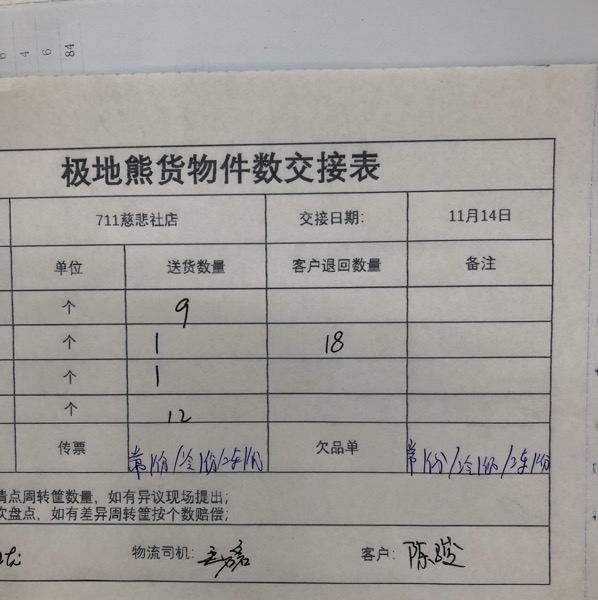 6 4 6 84
极地熊货物件数交接表
711慈悲社店 交接日期: 11月14日
单位 送货数量 客户退回数量 备注
个 9
个 1 18
个 1
个 12
传票 常1份/冷1份/冻1份 欠品单 常1份/冷1份/冻1份
清点周转筐数量，如有异议现场提出;
次盘点，如有差异周转筐按个数赔偿;
物流司机: 客户: 陈